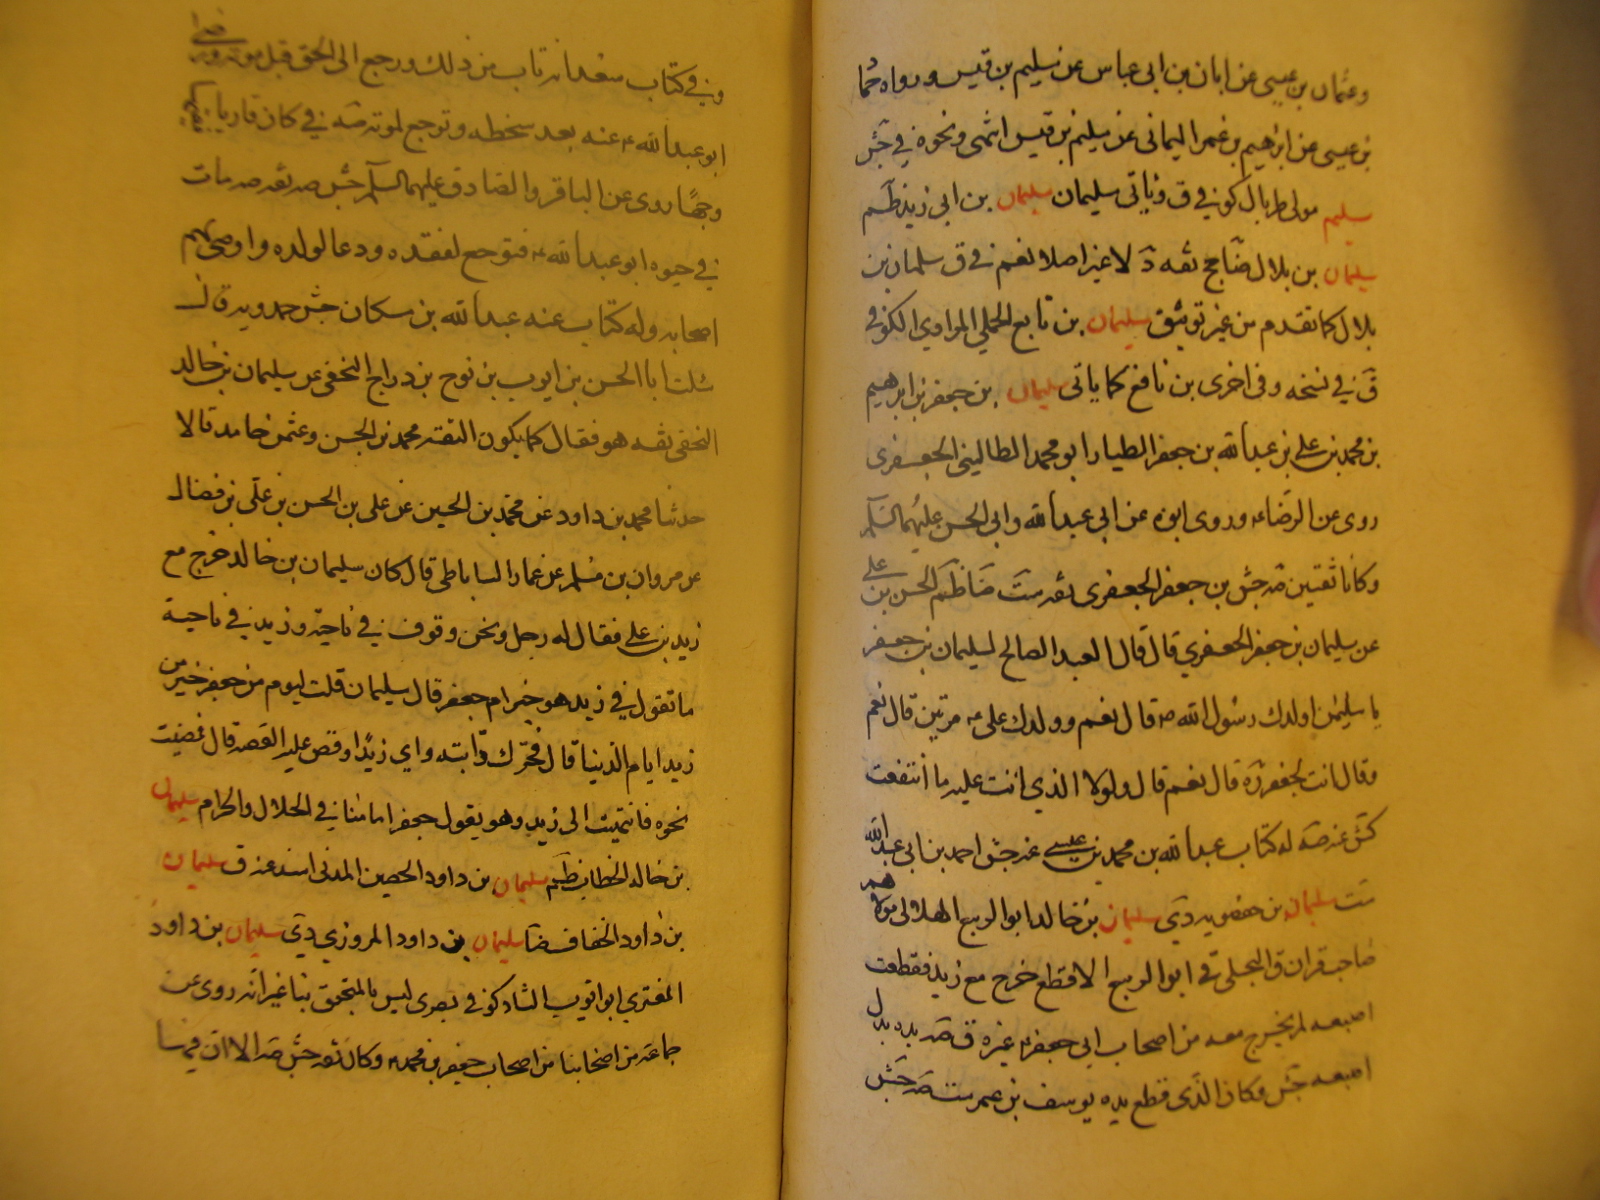 وعثمان بن عيسى عن ابان بن ابى عباس عن سليم بن قيس ورواه حما
بن عيسى عن ابرهيم بن عمر اليمانى عن سليم بن قيس انتهى ونحوه في جش
سليم مولى طربال كوفي ق وياتى سليمان سليمان بن ابى زيد ظم
سليمان بن بلال ضا جخ ثقه د لا غير اصلا نعم في ق سلمان بن
بلال كما تقدم من غير توثيق سليمان بن تابع الحملي المرادي الكوفي
ق في نسخه وفى اخرى بن نافع كما ياتى سليمان بن جعفر بن ابرهيم
بن محمد بن على بن عبد الله بن جعفر الطيار ابو محمد الطالبى الجعفرى
روى عن الرضا ع وروى ابوه عن ابى عبد الله وابى الحسن عليهما السلم
وكانا ثقتين صه جش بن جعفر الجعفرى ثقه ست ضا ظم الحسن بن على
عن سليمان بن جعفر الجعفري قال قال العبد الصالح لسليمان بن جعفر
يا سليمن اولدك رسول الله ص قال نعم وولدك على ع مرتين قال نعم
وقال انت لجعفر ره قال نعم قال ولولا الذي انت عليه ما انتفعت
كش عنه صه له كتاب عبد الله بن محمد بن عيسى عنه جش احمد بن ابى عبد الله
ست سليمان بن حفويه دي سليمان بن خالد ابو الربيع الهلالى مولاهم
صاحب قران ق البجلى قي ابو الربيع الاقطع خرج مع زيد فقطعت
اصبعه لم يخرج معه من اصحاب ابى جعفر ع غيره ق صه يده بدل
اصبعه جش وكان الذى قطع يده يوسف بن عمر ست صه جش
وفي كتاب سعد انه تاب من ذلك ورجع الى الحق قبل موته ورضى
ابو عبد الله ع عنه بعد سخطه وتوجع لموته صه في كان قاريا فقيها
وجها روى عن الباقر والصادق عليهما السلم جش صه ثقه صه مات
في حيوه ابو عبد الله ع فتوجع لفقده ودعا لولده واوصى بهم
اصحابه وله كتاب عنه عبد الله بن مسكان جش حمدويه قال
سئلت ابا الحسن بن ايوب بن نوح بن دراج النخعى عن سليمان بن خالد
النخعى ثقه هو فقال كما يكون الثقه محمد بن الحسن وعثمن حامد قالا
حدثنا محمد بن داود عن محمد بن الحسين عن على بن الحسن بن على بن فضال
عن مروان بن مسلم عن عمار الساباطى قال كان سليمان بن خالد خرج مع
زيد بن على فقال له رجل ونحن وقوف في ناحية وزيد في ناحية
ما تقول في زيد هو خير ام جعفر قال سليمان قلت ليوم من جعفر خير من
زيد ايام الدنيا قال فحرك دابته واي زيدا وقص عليه القصه قال فمضيت
نحوه فانتهيت الى زيد وهو يقول جعفر امامنا في الحلال والحرام سليمان
بن خالد الخطاب ظم سليمان بن داود الحصين المدنى اسند عنه ق سليمان
بن داود الخفاف ضا سليمان بن داود المروزي دي سليمان بن داود
المنقري ابو ايوب الشاذكوني بصرى ليس بالمتحقق بنا غير انه روى عن
جماعه من اصحابنا من اصحاب جعفر بن محمد ع وكان ثقه جش صه الا ان فيها